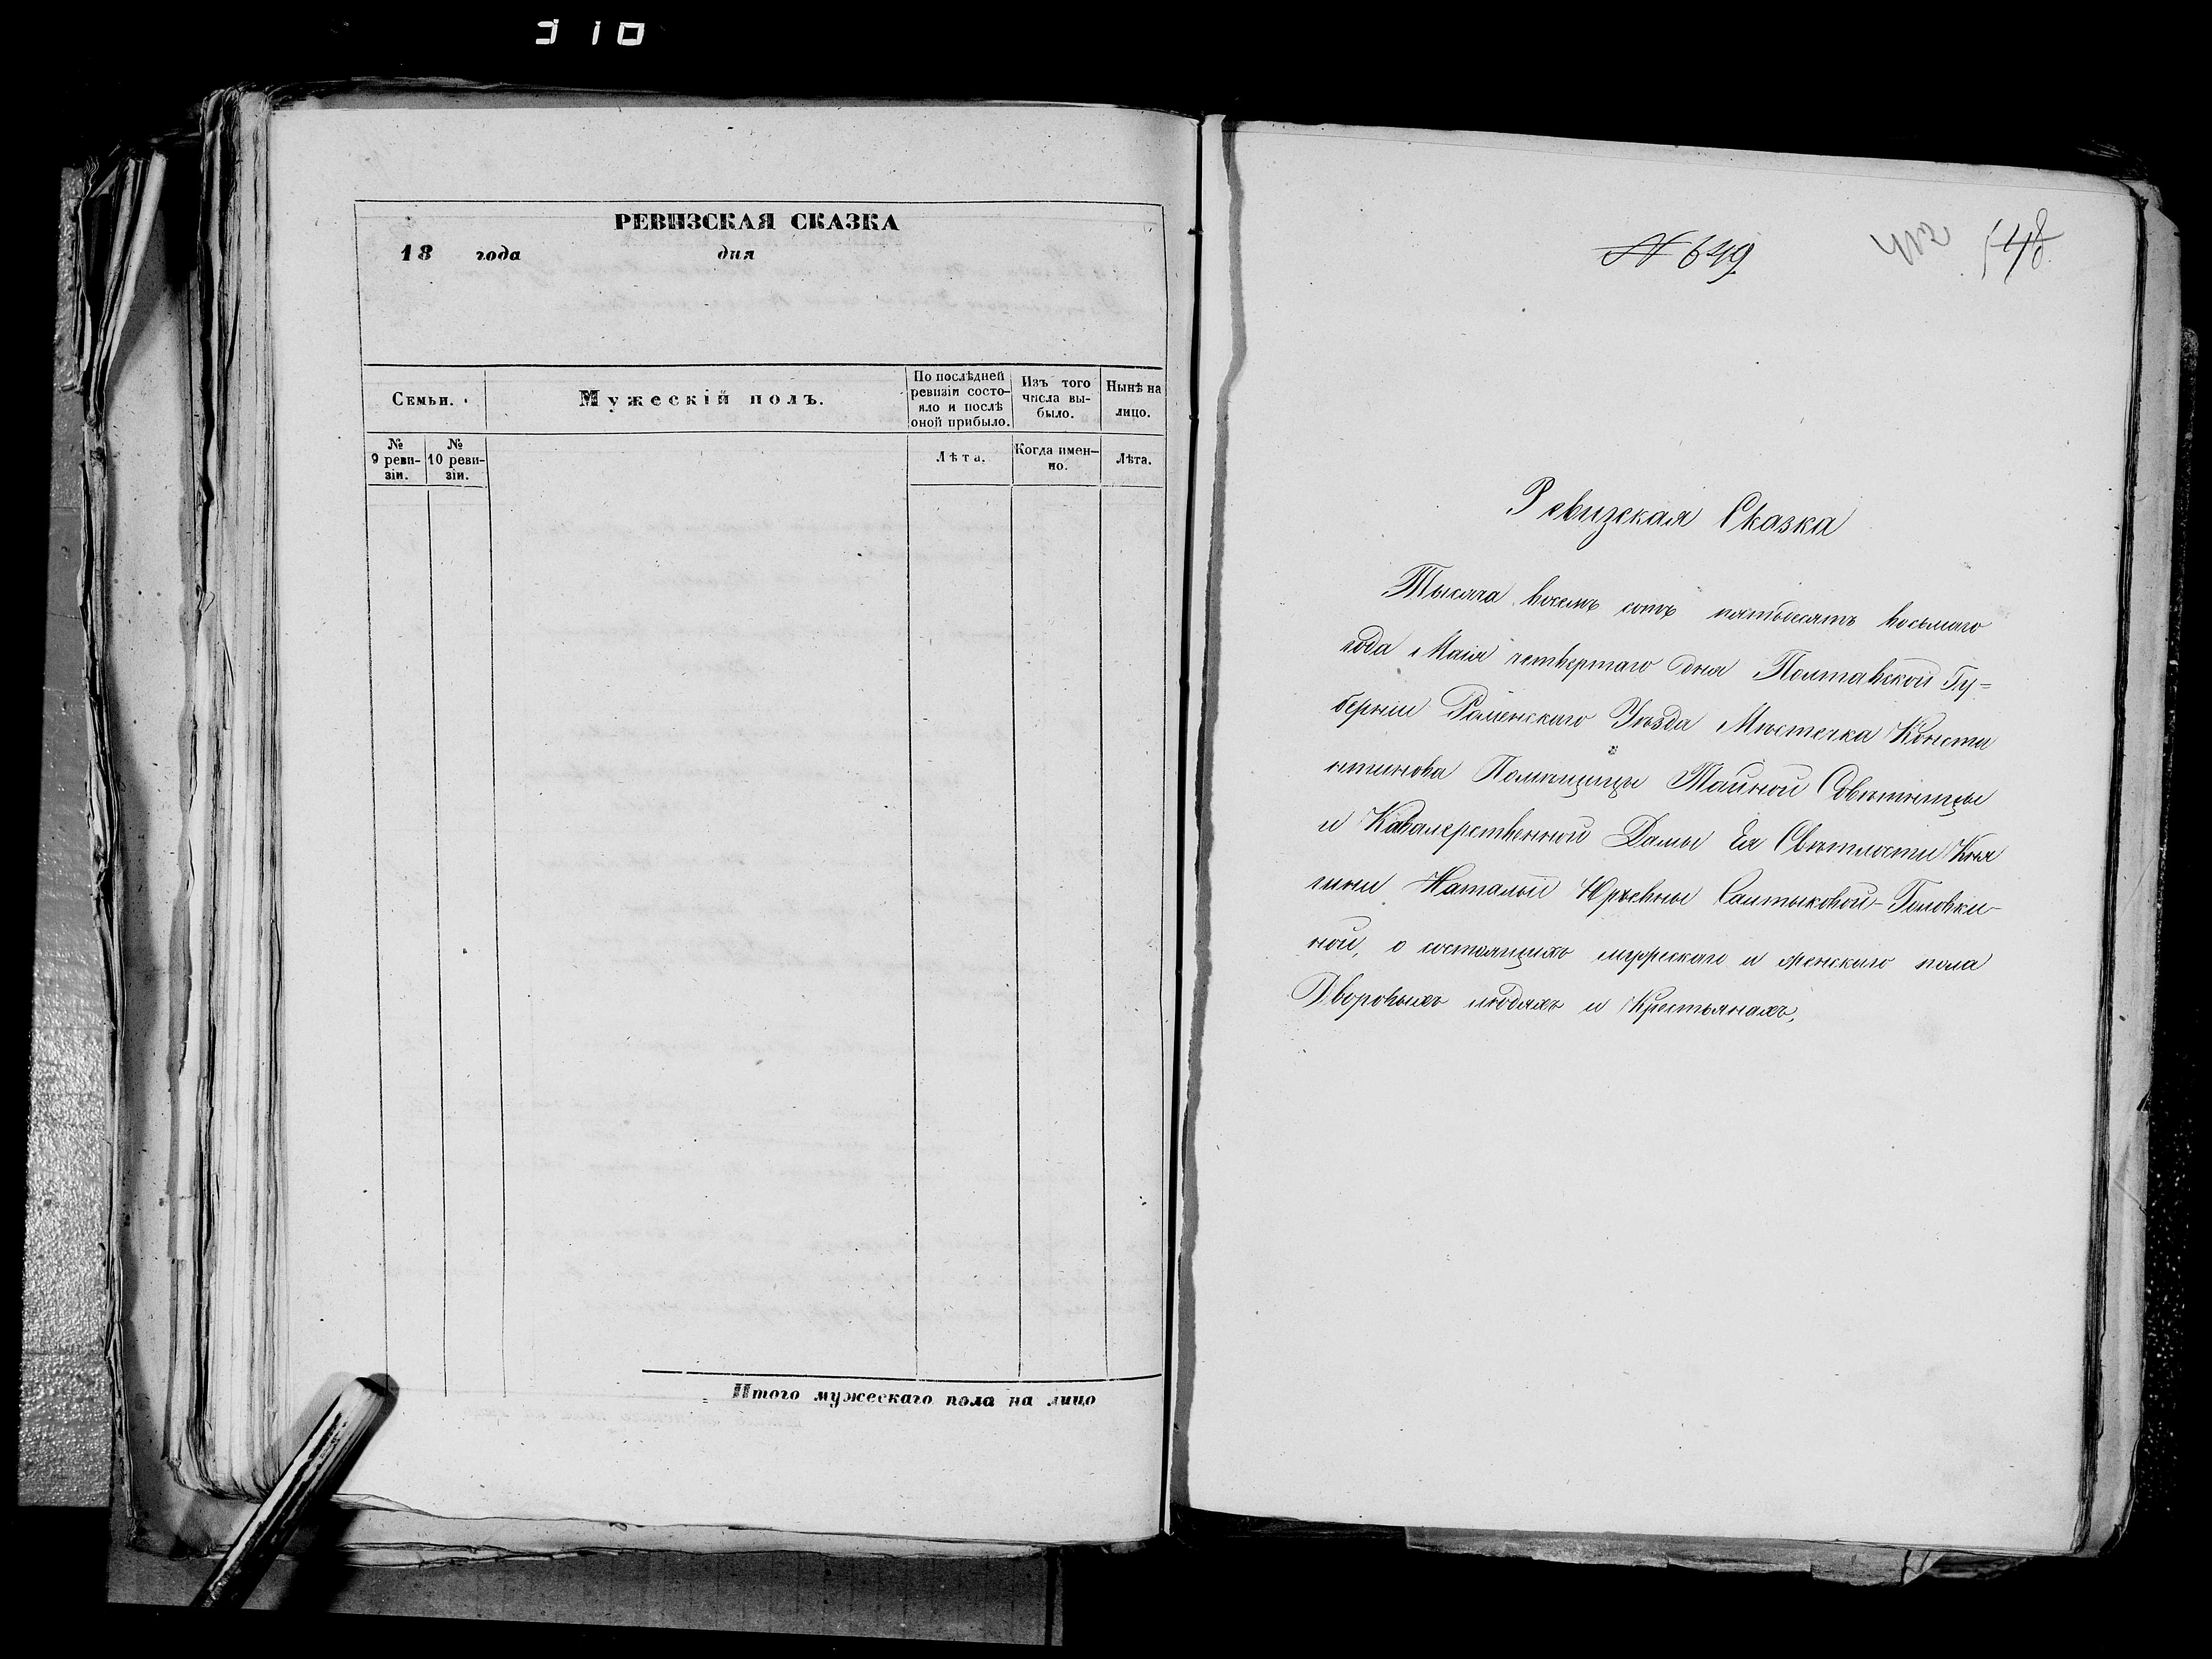 310
РЕВИЗСКАЯ СКАЗКА
18 года дня
Семьи.
Мужескій полъ.
По послѣдней ревизіи состояло и послѣ оной прибыло.
Изъ того числа выбыло.
Нынѣ на лицо.
№ 9 ревизіи.
№ 10 ревизіи.
Лѣта.
Когда именно.
Лѣта.
Итого мужескаго пола на лицо
№ 649
548
Ревизская Сказка
Тысяча восемъ сотъ пятьдесятъ восьмаго
года Маія четвертаго дня Полтавской Гу=
берніи Роменскаго Уѣзда Мѣстечка Конста
нтинова Помѣщицы Тайной Совѣтницы
и Кавалерственной Дамы Ея Свѣтлости Кня
гини Наталіи Юрьевны Салтыковой-Головки-
ной, о состоящихъ мужескаго и женскаго пола
Дворовыхъ людяхъ и Крестьянахъ,